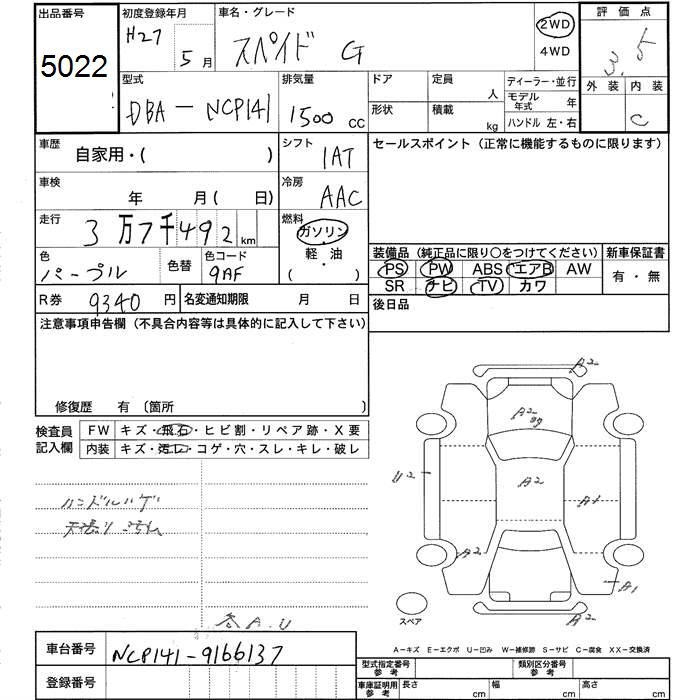 出品番号 初度登録年月 車名・グレード 2WD 評価点
5022 H27 5月 スペイド G 4WD 3.5
型式 排気量 ドア 定員 人 ディーラー・並行 外装 内装
DBA-NCP141 1500 cc 形状 積載 kg モデル年式 年 C
ハンドル 左・右
車歴 自家用・( ) シフト 1AT セールスポイント (正常に機能するものに限ります)
車検 年 月( 日) 冷房 AAC
走行 3万7千492km 燃料 ガソリン・軽油 ( )
色 パープル 色替 色コード 9AF
装備品 (純正品に限り○をつけてください) 新車保証書
PS PW ABS エアB AW 有・無
SR ナビ TV カワ
R券 9340円 名変通知期限 月 日 後日品
注意事項申告欄 (不具合内容等は具体的に記入して下さい)
修復歴 有 〔箇所 〕
検査員記入欄 FW キズ・飛石・ヒビ割・リペア跡・X要
内装 キズ・汚レ・コゲ・穴・スレ・キレ・破レ
ハンドルハゲ
天張り汚れ
各A.U
A2
A2
U2
A2
A1
A2
A1
A2
スペア
A-キズ E-エクボ U-凹み W-補修跡 S-サビ C-腐食 XX-交換済
車台番号 NCP141-9166137
型式指定番号 参考 類別区分番号 参考
登録番号 車庫証明用 参考 長さ cm 幅 cm 高さ cm